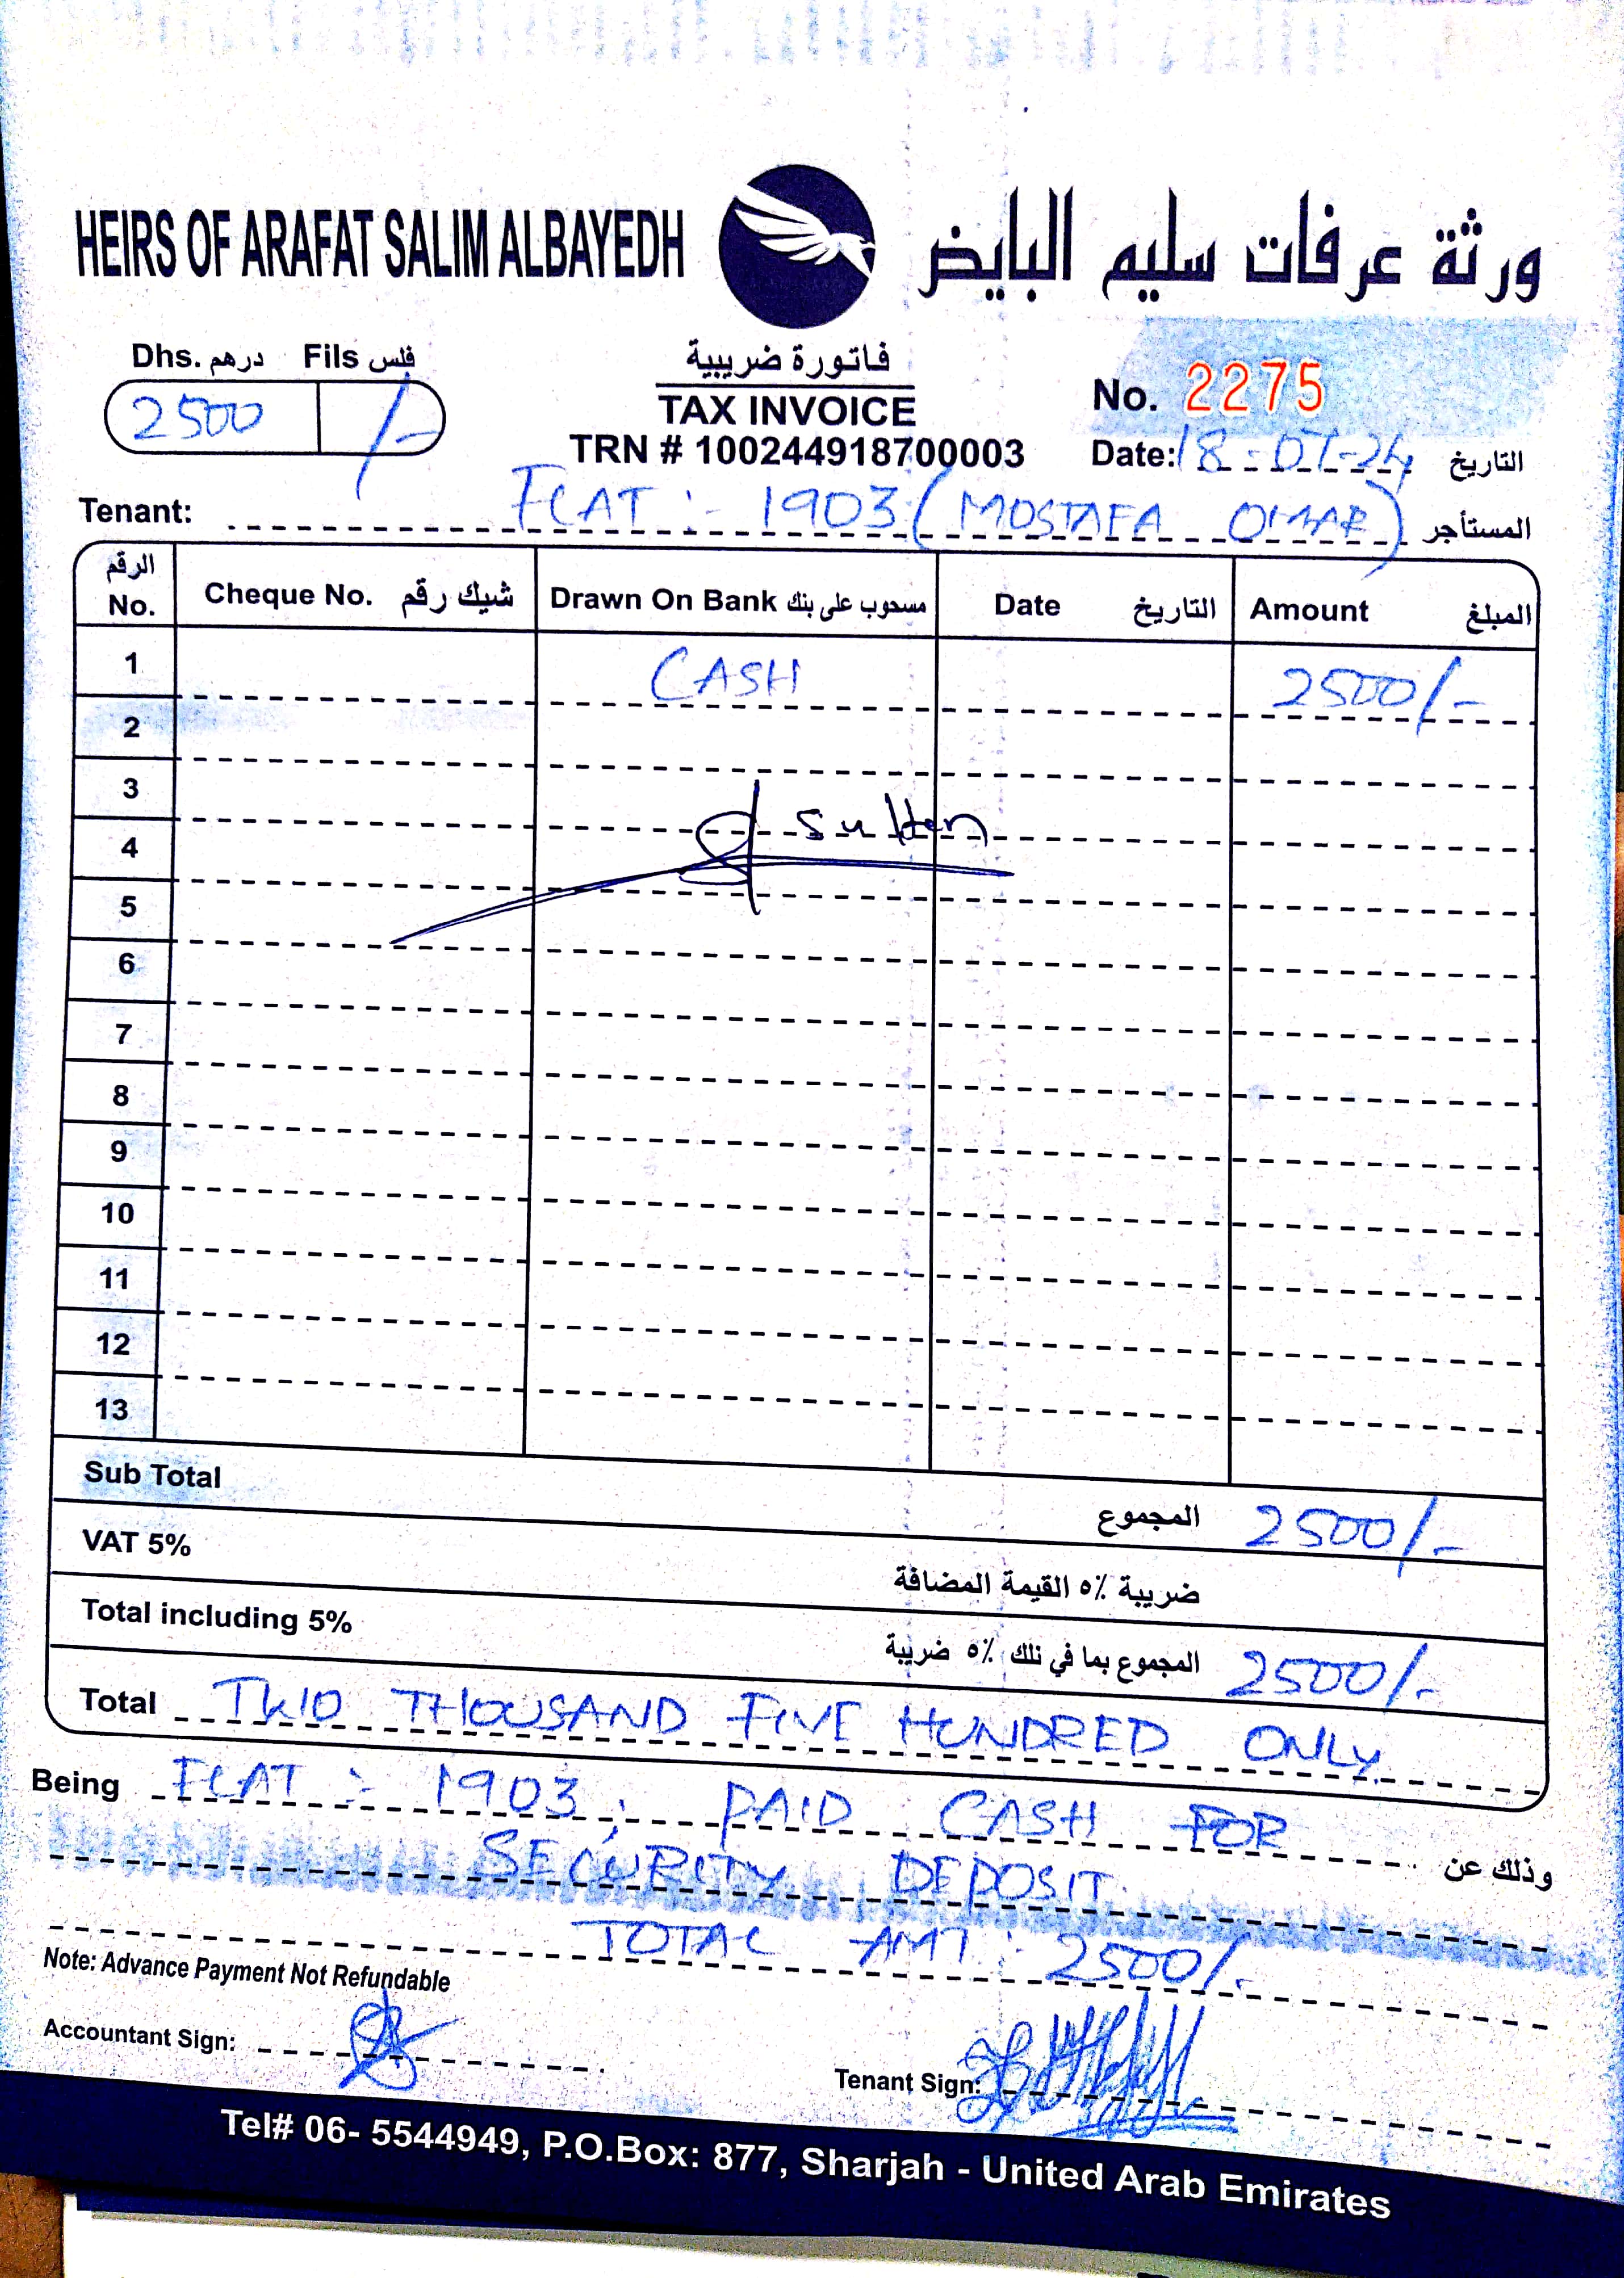 HEIRS OF ARAFAT SALIM ALBAYEDH ورثة عرفات سليم البايض
Dhs. درهم Fils فلس
2500 /-
فاتورة ضريبية
TAX INVOICE
TRN # 100244918700003
No. 2275
Date: 18-07-24 التاريخ
Tenant: FLAT :- 1903 (MOSTAFA OMAR) المستأجر
الرقم No. Cheque No. شيك رقم Drawn On Bank مسحوب على بنك Date التاريخ Amount المبلغ
1 CASH 2500/-
2
3
sultan
4
5
6
7
8
9
10
11
12
13
Sub Total المجموع 2500/-
VAT 5% ضريبة ٥٪ القيمة المضافة
Total including 5% المجموع بما في ذلك ٥٪ ضريبة 2500/-
Total TWO THOUSAND FIVE HUNDRED ONLY.
Being FLAT :- 1903, PAID CASH FOR وذلك عن
SECURITY DEPOSIT
TOTAL AMT : 2500/-
Note: Advance Payment Not Refundable
Accountant Sign:
Tenant Sign:
Tel# 06- 5544949, P.O.Box: 877, Sharjah - United Arab Emirates